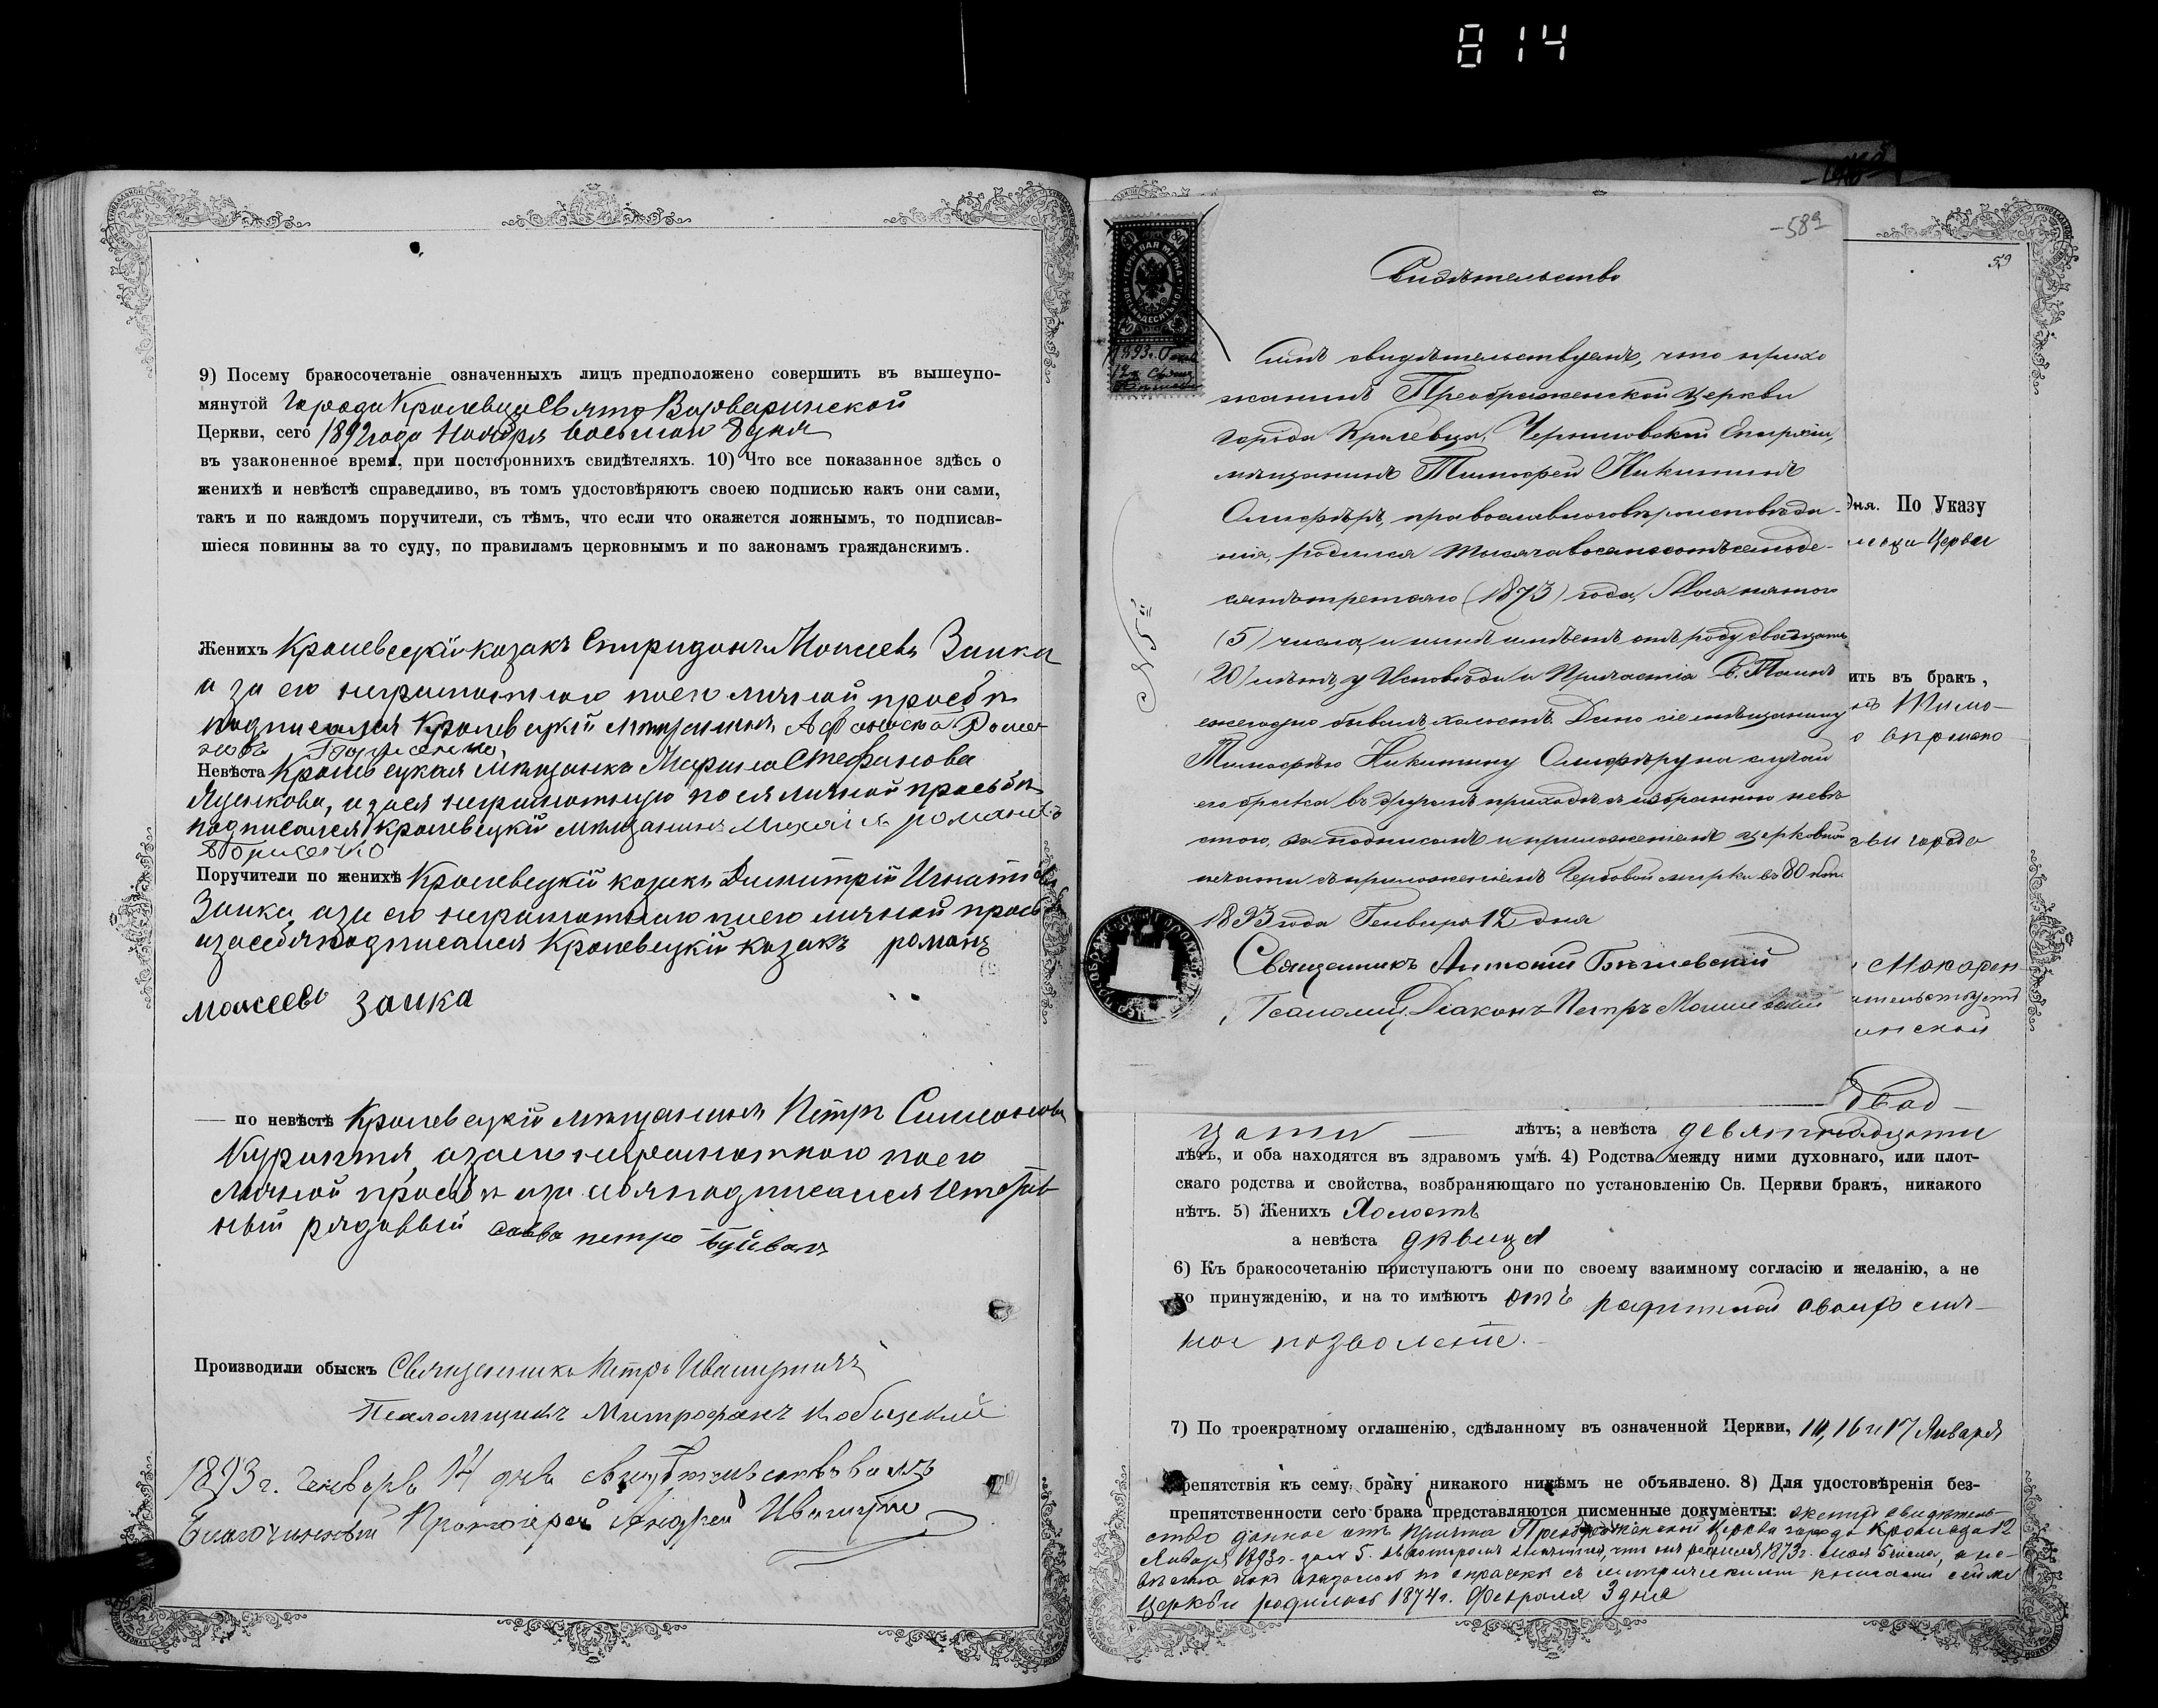 814
9) Посему бракосочетаніе означенныхъ лицъ предположено совершить въ вышеупо-
мянутой города Кролевца Свято Варваринской
Церкви, сего 1892 года Ноября восьмого дня
въ узаконенное время, при постороннихъ свидѣтеляхъ. 10) Что все показанное здѣсь о
женихѣ и невѣстѣ справедливо, въ томъ удостовѣряютъ своею подписью какъ они сами,
такъ и по каждомъ поручители, съ тѣмъ, что если что окажется ложнымъ, то подписав-
шіеся повинны за то суду, по правиламъ церковнымъ и по законамъ гражданскимъ.
Женихъ Кролевецкій козакъ Спиридонъ Моисеевъ Заика
а за его неграмотного по его личной просьбѣ
подписался Кролевецкій мѣщанинъ
Невѣста Кролевецкая мѣщанка Марина Стефанова
а за ея неграмотную по ея личной просьбѣ
подписался Кролевецкій мѣщанинъ Михаилъ романовъ
Борисенко
Поручители по женихѣ Кролевецкій козакъ Димитрій Игнатовъ
Заика, а за его неграмотного по его личной просьбѣ
и за себя подписался Кролевецкій козакъ романъ
моисеевъ заика
— по невѣстѣ Кролевецкій мѣщанинъ Петръ Симоновъ
а за его неграмотного по его
личной просьбѣ и за себя подписался
рядовый савва петро
Производили обыскъ Священникъ Петръ
Псаломщикъ Митрофанъ
1893 г. Генваря 14 дня свидѣтельствовалъ
Благочинный Протоіерей Андрей
-58а
59
Свидѣтельство
ГЕРБОВАЯ МАРКА
ВОСЕМЬДЕСЯТЪ КОП.
80
1893 г. Генв
12 д. Свящ
№ 5
Симъ свидѣтельствуемъ, что прихо
жанинъ Преображенской церкви
города Кролевца, Черниговской Епархіи,
мѣщанинъ Тимофей Никитинъ
Олиферъ, православного вѣроисповѣда-
нія, родился тысяча восемсотъ семьде-
сятъ третяго (1873) года, Мая пятого
(5) числа, и нынѣ имѣетъ отъ роду двадцать
(20) лѣтъ, у Исповѣди и Причастія Св. Таинъ
ежегодно бывалъ, холостъ. Дано сіе мѣщанину
Тимофею Никитину Олиферу на случай
его брака въ другомъ приходѣ съ избранною невѣ
стою, за подписомъ и приложеніемъ церковной
печати съ приложеніемъ Гербовой марки въ 80 коп.
1893 года Генваря 12 дня
Священникъ Антоній
Псаломщ. Діаконъ Петръ
дня. По Указу
Церкви
ить въ бракъ,
города
Макарен
инской
двад-
цати лѣтъ; а невѣста девятнадцати
лѣтъ, и оба находятся въ здравомъ умѣ. 4) Родства между ними духовнаго, или плот-
скаго родства и свойства, возбраняющаго по установленію Св. Церкви бракъ, никакого
нѣтъ. 5) Женихъ Холостъ
а невѣста дѣвица
6) Къ бракосочетанію приступаютъ они по своему взаимному согласію и желанію, а не
по принужденію, и на то имѣютъ отъ родителей своихъ сло-
ное позволеніе.
7) По троекратному оглашенію, сдѣланному въ означенной Церкви, 10, 16 и 17 Января
препятствія къ сему браку никакого никѣмъ не объявлено. 8) Для удостовѣренія без-
препятственности сего брака представляются писменные документы: жениху свидѣтель-
ство данное отъ причта Преображенской церкви города Кролевца 12
Января 1893 г. за № 5. въ которомъ значится, что онъ родился 1873 г. мая 5 числа, а не-
вѣста какъ оказалось по справкѣ съ метрическими книгами сей же
Церкви родилась 1874 г. Февраля 3 дня